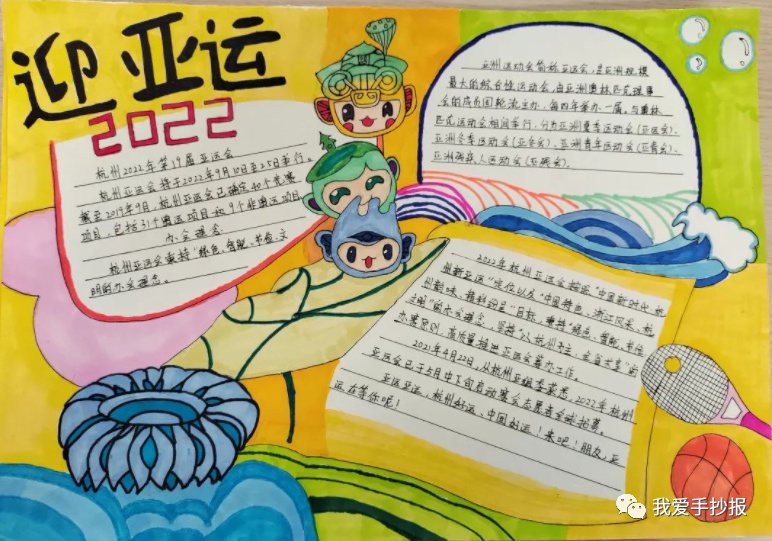 迎亚运
2022
杭州2022年第19届亚运会
杭州亚运会将于2022年9月10日至25日举行。
截至2019年9月,杭州亚运会已确定40个竞赛
项目,包括31个奥运项目和9个非奥运项目
办会理念
杭州亚运会秉持“绿色、智能、节俭、文
明的办会理念。
亚洲运动会简称亚运会,是亚洲规模
最大的综合性运动会,由亚洲奥林匹克理事
会的成员国轮流主办,每四年举办一届。与奥林
匹克运动会相间举行,分为亚洲夏季运动会(亚运会)、
亚洲冬季运动会(亚冬会)、亚洲青年运动会(亚青会)、
亚洲残疾人运动会(亚残会)。
2022年杭州亚运会按照“中国新时代·杭
州新亚运”定位以及“中国特色、浙江风采、杭
州韵味、精彩纷呈”目标,秉持“绿色、智能、节俭
文明”的办会理念,坚持“以杭州为主、全省共享”的
办赛原则,高质量推进亚运会筹办工作。
2021年4月22日,从杭州亚组委获悉,2022年杭州
亚运会已于5月中下旬启动赛会志愿者全球招募。
亚运亚运,杭州好运,中国好运!来吧!朋友,亚
运在等你呢!
我爱手抄报